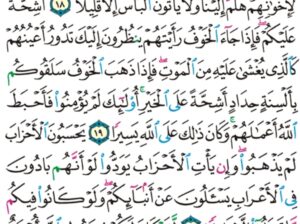 لِإِخْوَٰنِهِمْ هَلُمَّ إِلَيْنَا وَلَا يَأْتُونَ ٱلْبَأْسَ إِلَّا قَلِيلًا ١٨ أَشِحَّةً
عَلَيْكُمْ فَإِذَا جَآءَ ٱلْخَوْفُ رَأَيْتَهُمْ يَنظُرُونَ إِلَيْكَ تَدُورُ أَعْيُنُهُمْ
كَٱلَّذِى يُغْشَىٰ عَلَيْهِ مِنَ ٱلْمَوْتِ فَإِذَا ذَهَبَ ٱلْخَوْفُ سَلَقُوكُم
بِأَلْسِنَةٍ حِدَادٍ أَشِحَّةً عَلَى ٱلْخَيْرِ أُو۟لَٰٓئِكَ لَمْ يُؤْمِنُوا۟ فَأَحْبَطَ
ٱللَّهُ أَعْمَٰلَهُمْ وَكَانَ ذَٰلِكَ عَلَى ٱللَّهِ يَسِيرًا ١٩ يَحْسَبُونَ ٱلْأَحْزَابَ
لَمْ يَذْهَبُوا۟ وَإِن يَأْتِ ٱلْأَحْزَابُ يَوَدُّوا۟ لَوْ أَنَّهُم بَادُونَ
فِى ٱلْأَعْرَابِ يَسْـَٔلُونَ عَنْ أَنۢبَآئِكُمْ وَلَوْ كَانُوا۟ فِيكُم